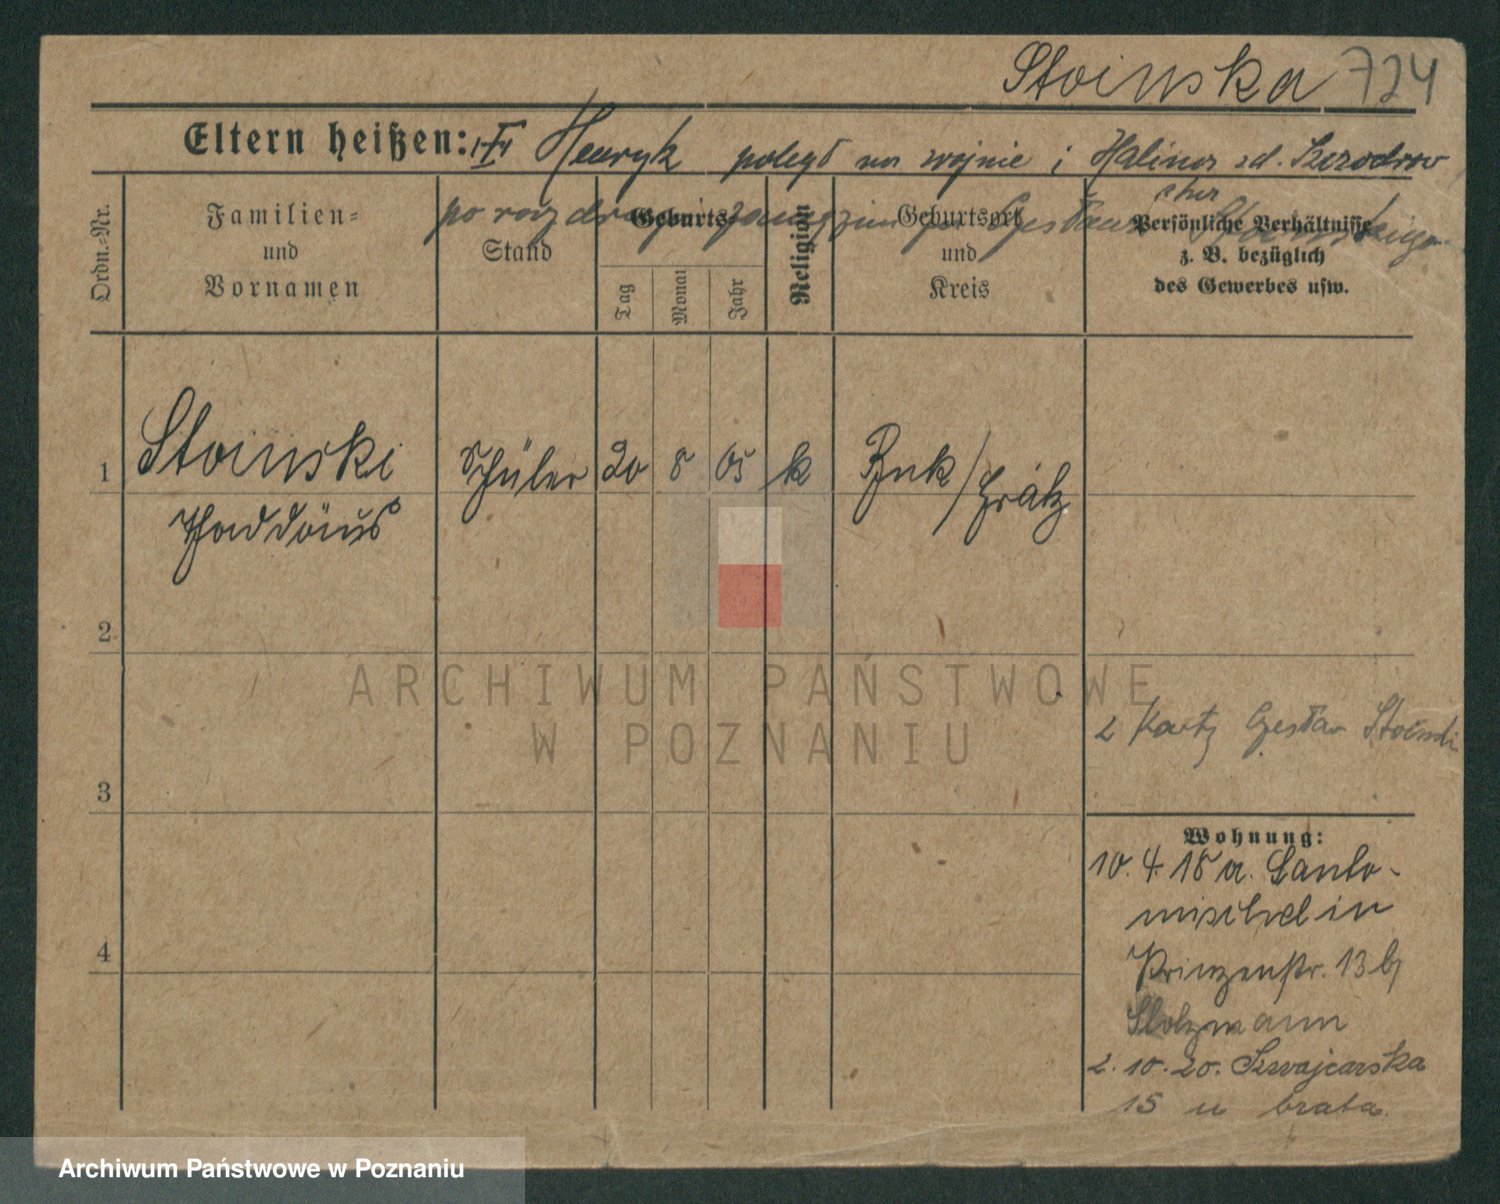 Stoinska 724
Eltern heißen: Henryk poległ na wojnie i Halina zd.
Ordn.-Nr.
Familien-
und
Vornamen
Stand
Geburts-
Tag
Monat
Jahr
Religion
Geburtsort
und
Kreis
Persönliche Verhältnisse
z. B. bezüglich
des Gewerbes usw.
1
Stoinski
Thaddäus
Schüler
20
8
05
k
Buk / Grätz
2
3
4
2 Karty Czesław Stoinski
Wohnung:
10. 4. 18 a. Santo-
mischel in
Prinzenstr. 13 b
Stolzmann
2. 10. 20. Szwajcarska
15 u brata.
ARCHIWUM PAŃSTWOWE
W POZNANIU
Archiwum Państwowe w Poznaniu